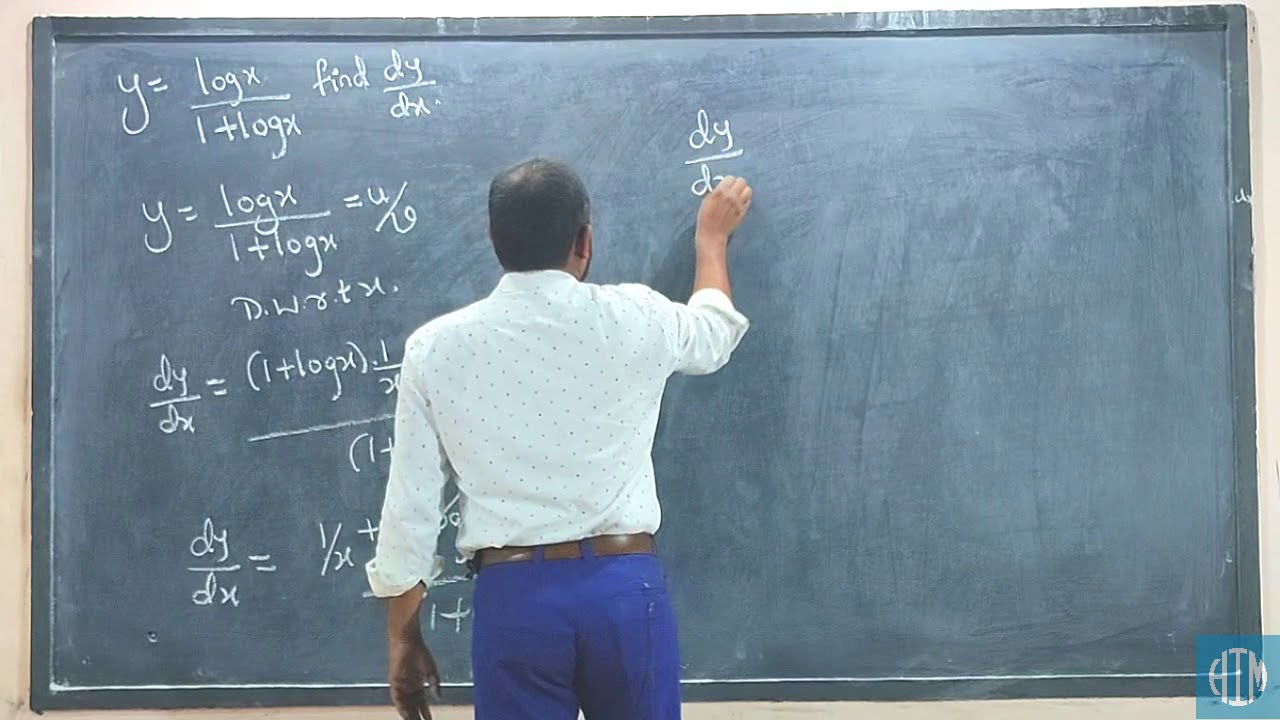 y = logx / 1+logx find dy/dx.
y = logx / 1+logx = u/v
D.w.r.t x.
dy/dx = (1+logx).1/x / (1+
dy/dx = 1/x + / 1+
dy/dx
dx
HIM